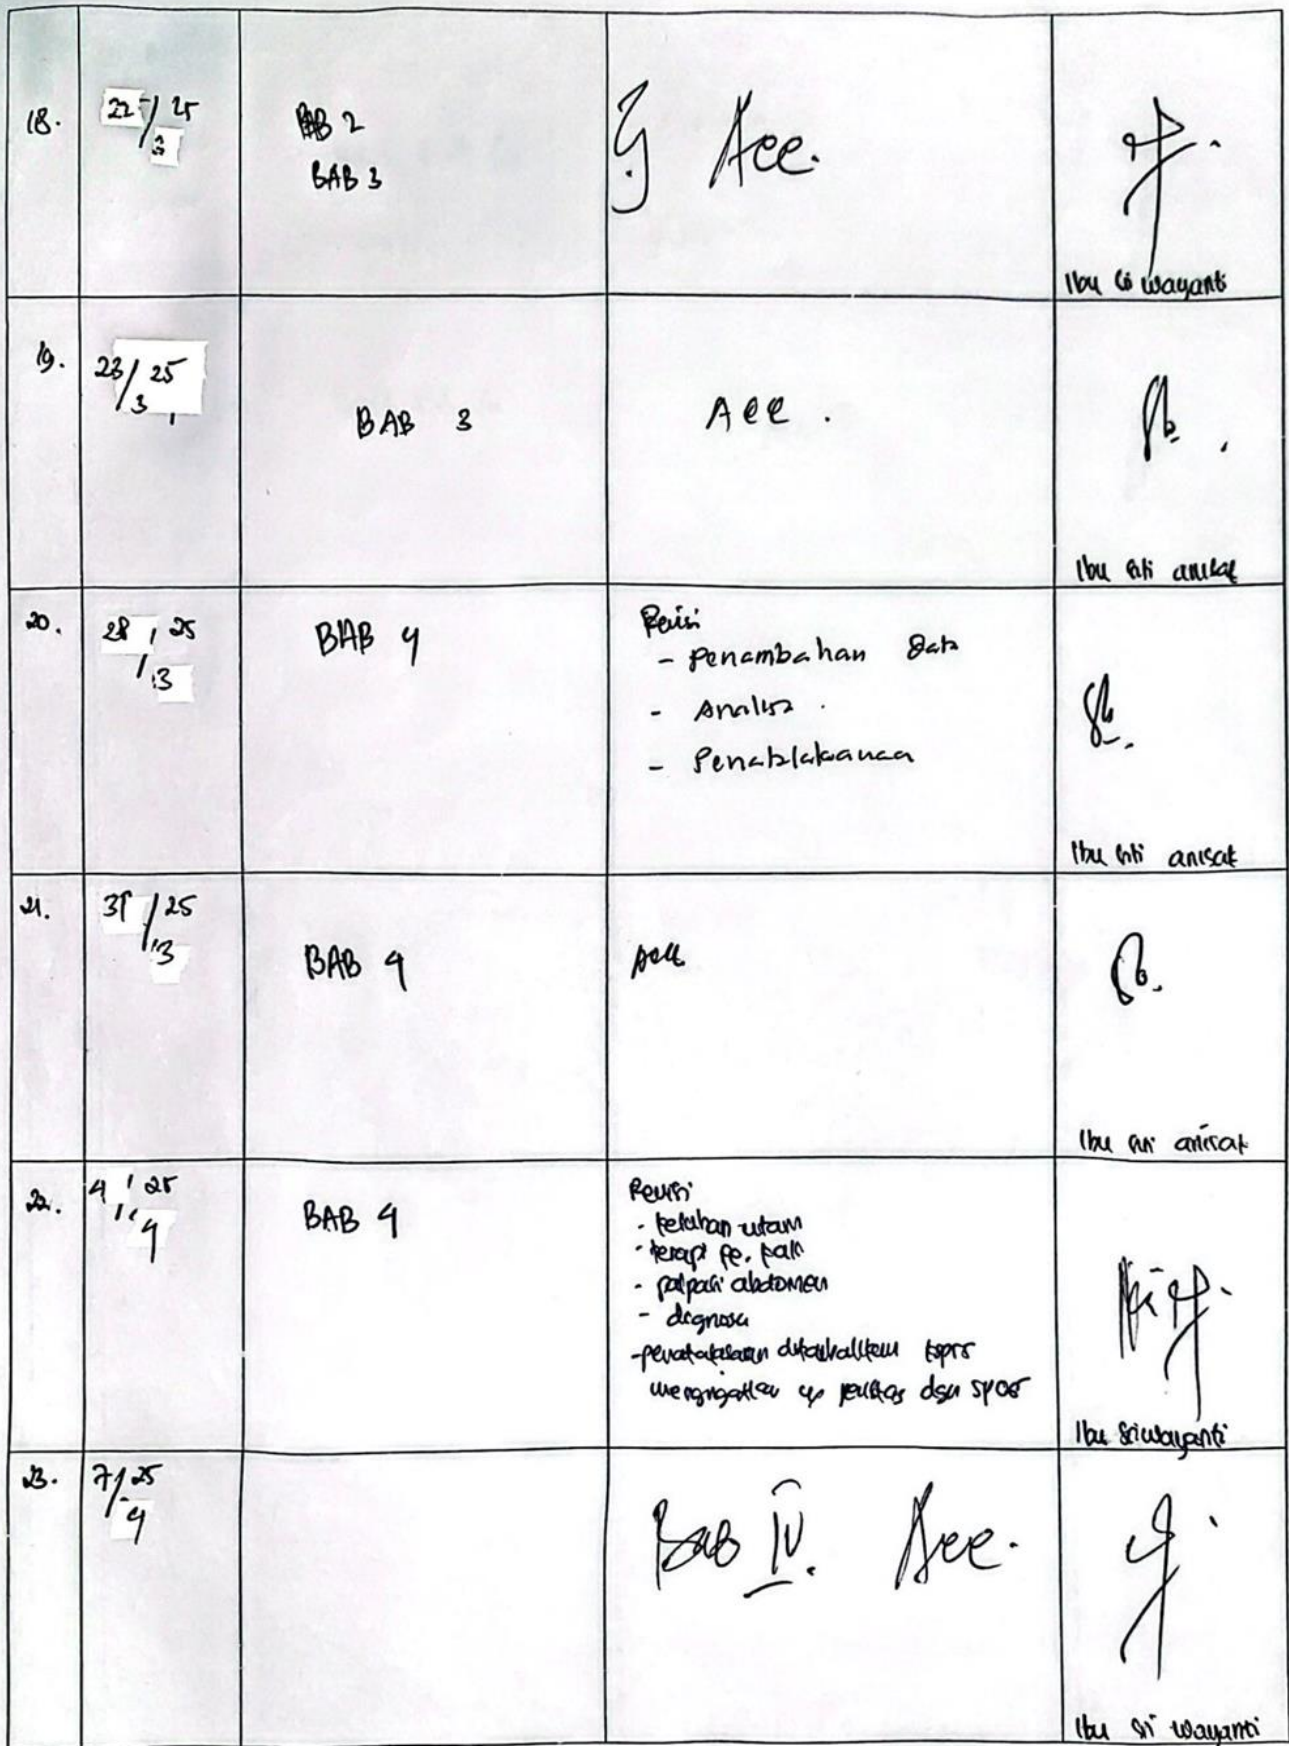 18.
22/25
3
BAB 2
BAB 3
} Acc.
Ibu Sri wayanti
19.
23/25
3
BAB 3
Acc.
Ibu siti anisat
20.
28/25
3
BAB 4
Revisi
- Penambahan Data
- Analisa
- Penatalaksanaan
Ibu siti anisat
21.
31/25
3
BAB 4
Acc
Ibu siti anisat
22.
4/25
4
BAB 4
Revisi
- keluhan utam
- terapi
- palpasi abdomen
- dignosa
- penatalaksaan
Ibu Sriwayanti
23.
7/25
4
Bab IV. Acc.
Ibu sri wayanti